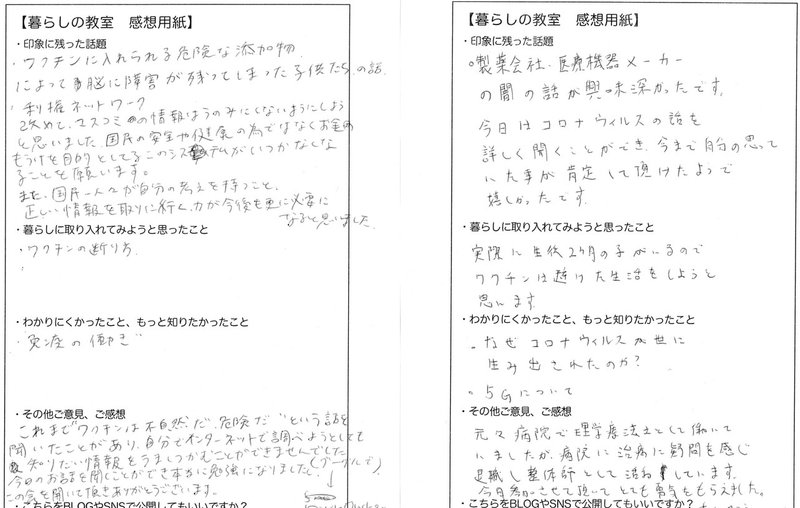 【暮らしの教室　感想用紙】
・印象に残った話題
・ワクチンに入れられる危険な添加物
によって脳に障害が残ってしまった子供たちの話
・利権ネットワーク
改めて、マスコミの情報はうのみにしないようにしよう
と思いました。国民の安全や健康の為ではなくお金の
もうけを目的としてるこのシステムがいつかなくな
ることを願います。
また、国民一人一人が自分の考えを持つこと、
正しい情報を取りに行く力が今後も更に必要に
なると思いました。
・暮らしに取り入れてみようと思ったこと
・ワクチンの断り方
・
・わかりにくかったこと、もっと知りたかったこと
・免疫の働き
・その他ご意見、ご感想
これまで"ワクチンは不自然だ、危険だ"という話を
聞いたことがあり、自分でインターネットで調べようとしても
知りたい情報をうまくつかむことができませんでした。
(グーグルで)
今日のお話を聞くことができ本当に勉強になりました。
この会を開いて頂きありがとうございます。
・こちらをBLOGやSNSで公開してもいいですか？
【暮らしの教室　感想用紙】
・印象に残った話題
。製薬会社、医療機器メーカー
の闇の話が興味深かったです。
今日はコロナウィルスの話を
詳しく聞くことができ、今まで自分の思って
いた事が肯定して頂けたようで
嬉しかったです。
・暮らしに取り入れてみようと思ったこと
実際に生後2ヶ月の子がいるので
ワクチンは避けた生活をしようと
思います。
・わかりにくかったこと、もっと知りたかったこと
。なぜコロナウィルスが世に
生み出されたのか？
。5Gについて
・その他ご意見、ご感想
元々病院で理学療法士として働いて
いましたが、病院に治療に疑問を感じ
退職し整体師として活動しています。
今日参加させて頂いてとても勇気をもらえました。
・こちらをBLOGやSNSで公開してもいいですか？